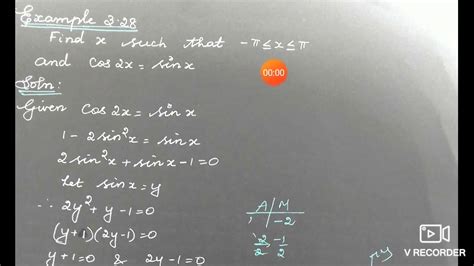 Example 3.28
Find x such that -π ≤ x ≤ π
and cos 2x = sin x
Soln:
Given cos 2x = sin x
1 - 2sin²x = sin x
2sin²x + sin x - 1 = 0
Let sin x = y
∴ 2y² + y - 1 = 0
(y+1)(2y-1) = 0
y+1 = 0 & 2y-1 = 0
A/M
1 | -2
2/2, -1/2
00:00
V RECORDER